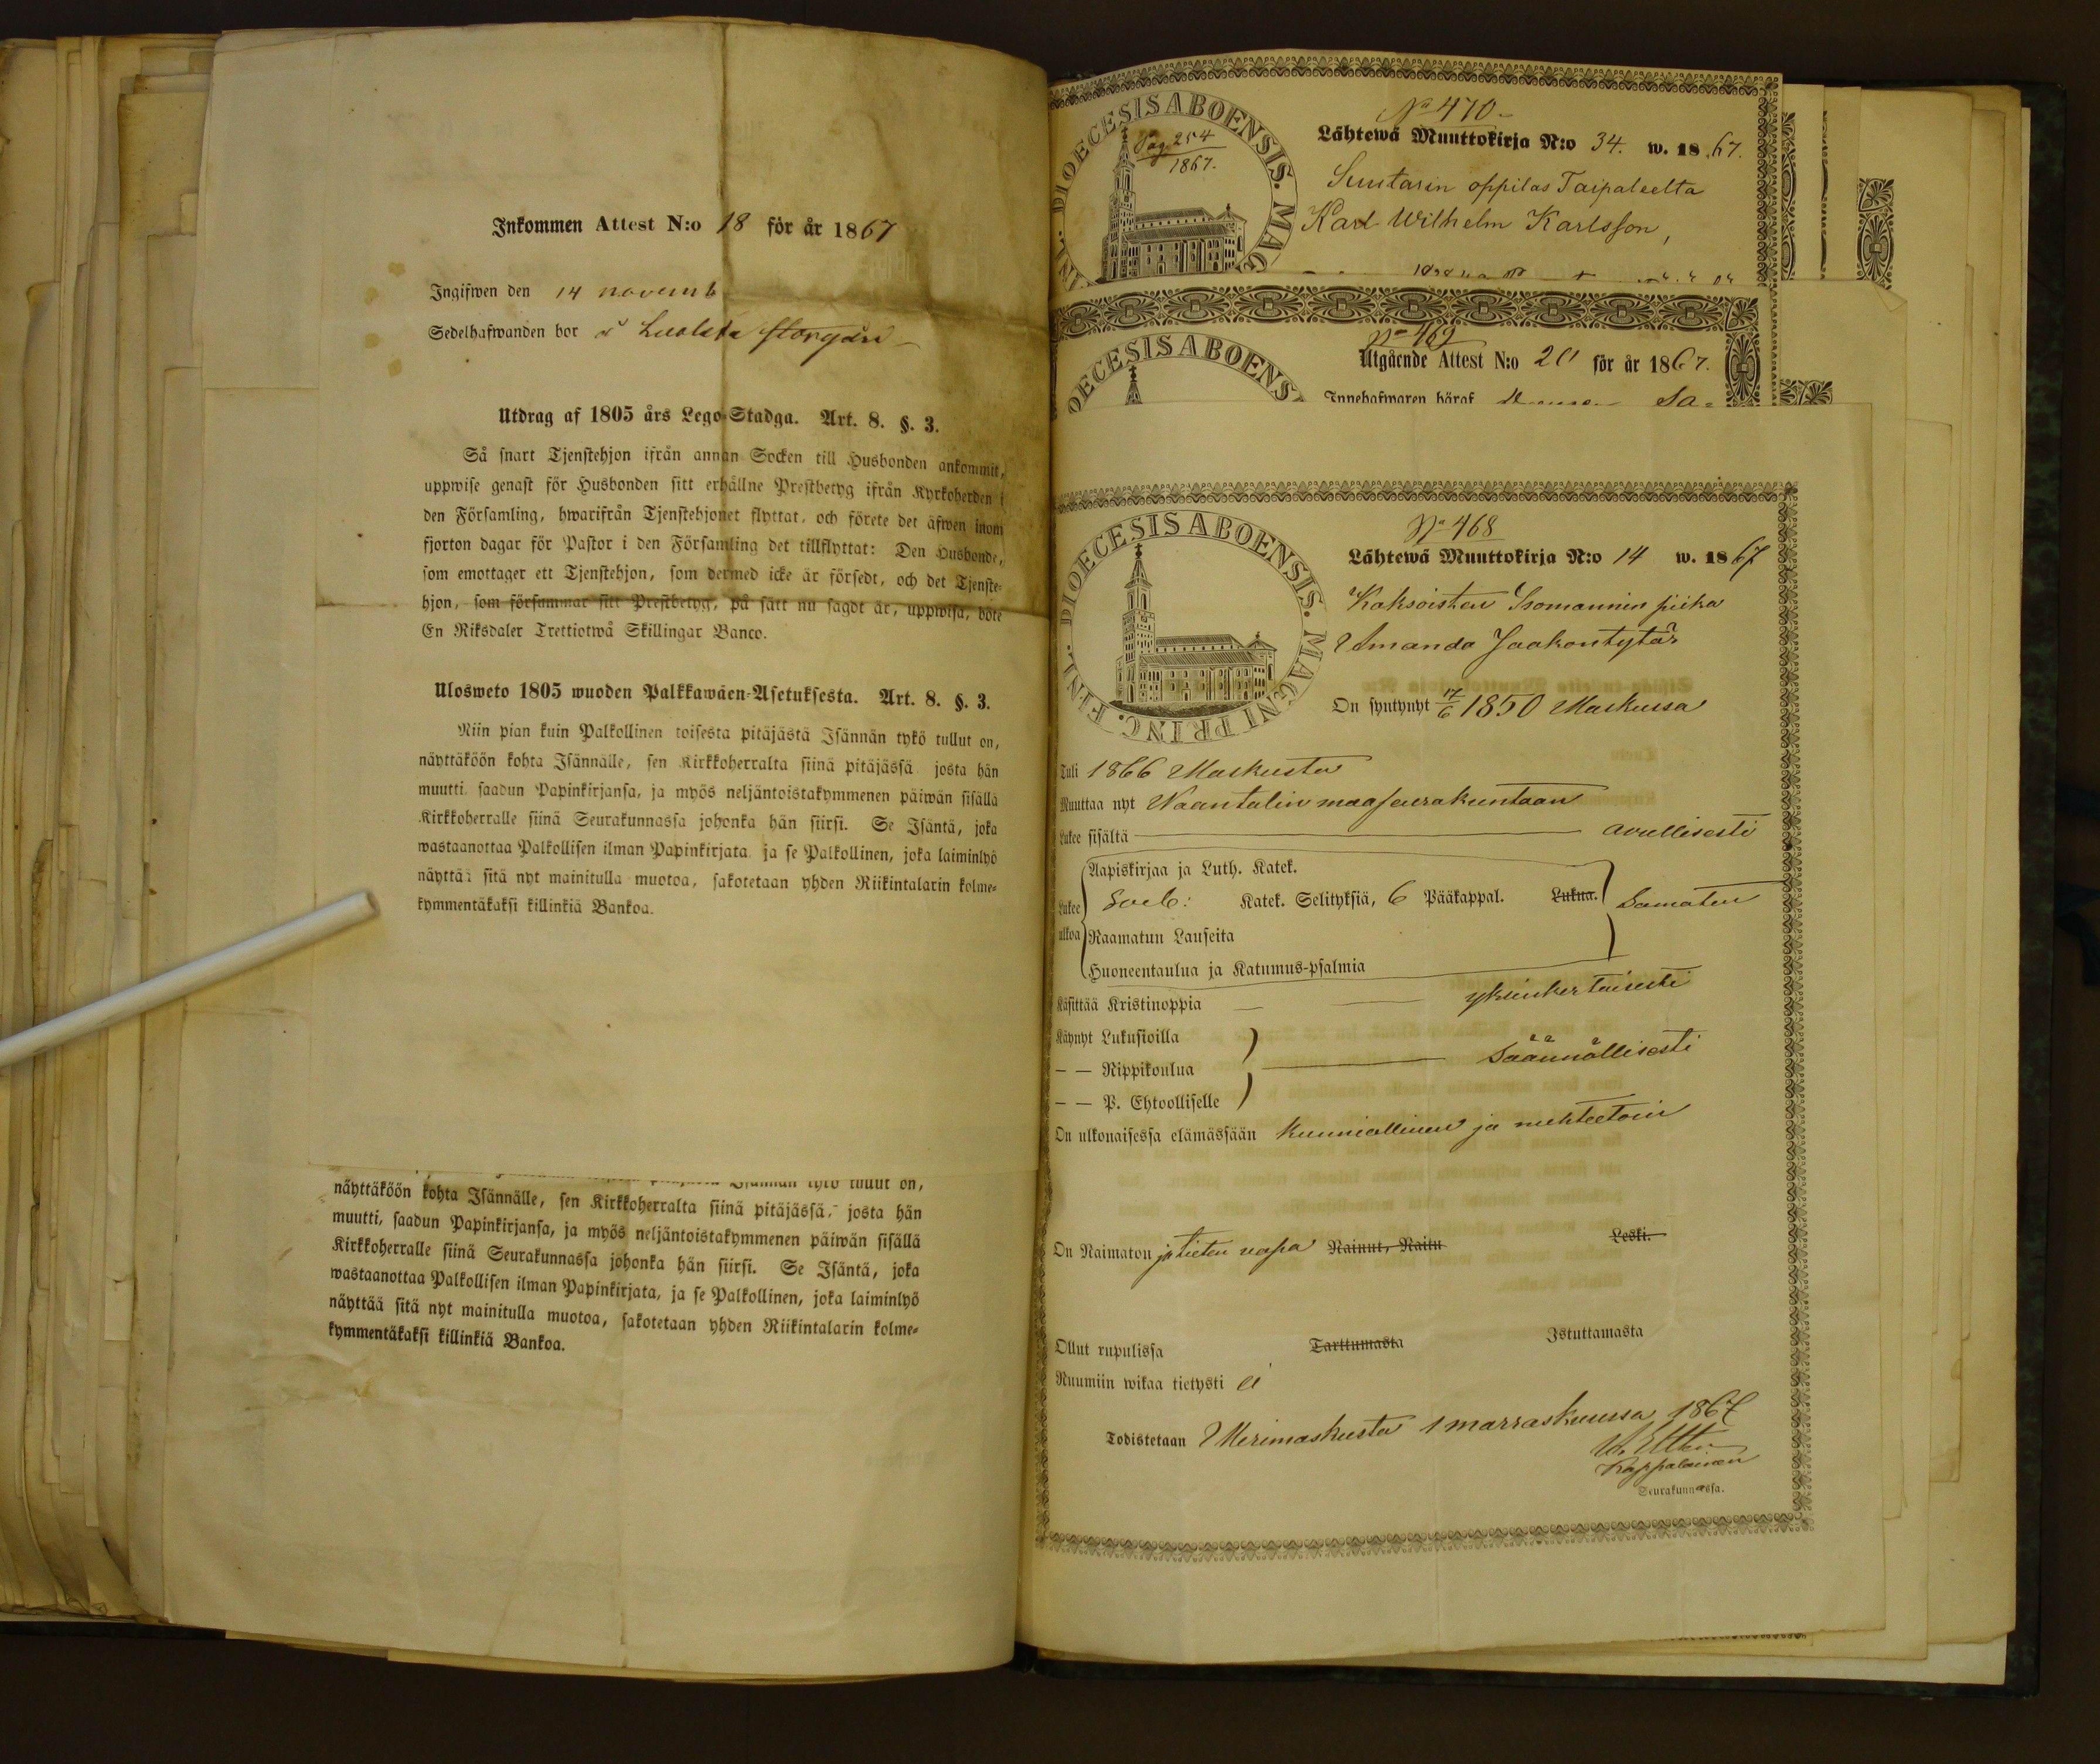 Inkommen Attest N:o 18 för år 1867
Ingifwen den 14 novemb
Sedelhafwanden bor å Luolsta storgård
Utdrag af 1805 års Lego-Stadga. Art. 8. §. 3.
Så snart Tjenstehjon ifrån annan Socken till Husbonden ankommit,
uppwise genast för Husbonden sitt erhållne Prestbetyg ifrån Kyrkoherden i
den Församling, hwarifrån Tjenstehjonet flyttat, och förete det äfwen inom
fjorton dagar för Pastor i den Församling det tillflyttat: Den Husbonde,
som emottager ett Tjenstehjon, som dermed icke är försedt, och det Tjenste-
hjon, som försummar sitt Prestbetyg, på sätt nu sagdt är, uppwisa, böte
En Riksdaler Trettiotwå Skillingar Banco.
Ulosweto 1805 wuoden Palkkawäen-Asetuksesta. Art. 8. §. 3.
Niin pian kuin Palkollinen toisesta pitäjästä Isännän tykö tullut on,
näyttäköön kohta Isännälle, sen Kirkkoherralta siinä pitäjässä josta hän
muutti saadun Papinkirjansa, ja myös neljäntoistakymmenen päiwän sisällä
Kirkkoherralle siinä Seurakunnassa johonka hän siirsi. Se Isäntä, joka
wastaanottaa Palkollisen ilman Papinkirjata ja se Palkollinen, joka laiminlyö
näyttää sitä nyt mainitulla muotoa, sakotetaan yhden Riikintalarin kolme-
kymmentäkaksi killinkiä Bankoa.
tykö tullut on,
näyttäköön kohta Isännälle, sen Kirkkoherralta siinä pitäjässä, josta hän
muutti, saadun Papinkirjansa, ja myös neljäntoistakymmenen päiwän sisällä
Kirkkoherralle siinä Seurakunnassa johonka hän siirsi. Se Isäntä, joka
wastaanottaa Palkollisen ilman Papinkirjata, ja se Palkollinen, joka laiminlyö
näyttää sitä nyt mainitulla muotoa, sakotetaan yhden Riikintalarin kolme-
kymmentäkaksi killinkiä Bankoa.
DIOECESIS ABOENSIS. MAG
Pag. 254
1867.
No 470
Lähtewä Muuttokirja N:o 34. w. 1867.
Suutarin oppilas Taipaleelta
Karl Wilhelm Karlsson,
OECESIS ABOENS
No 469
Utgående Attest N:o 20 för år 1867.
Innehafwaren häraf
DIOECESIS ABOENSIS. MAGNI PRINC. FINL.
No 468
Lähtewä Muuttokirja N:o 14 w. 1867
Kaksoisten Isomannin piika
Amanda Jaakontytär
On syntynyt 17/6 1850 Maskussa
Tuli 1866 Maskusta
Muuttaa nyt Naantalin maaseurakuntaan
Lukee sisältä avullisesti
Aapiskirjaa ja Luth. Katek.
Lukee ulkoa Sveb: Katek. Selityksiä, 6 Pääkappal. Lukua. Samaten
Raamatun Lauseita
Huoneentaulua ja Katumus-psalmia
Käsittää Kristinoppia yksinkertaisesti
Käynyt Lukusioilla
— — Rippikoulua Säännöllisesti
— — P. Ehtoolliselle
On ulkonaisessa elämässään kunniallinen ja nuhteetoin
On Naimaton ja tieten vapa Nainut, Naitu Leski.
Ollut rupulissa Tarttumasta Istuttamasta
Ruumiin wikaa tietysti ei
Todistetaan Merimaskusta 1 marraskuussa 1867
Kappalainen
Seurakunnassa.